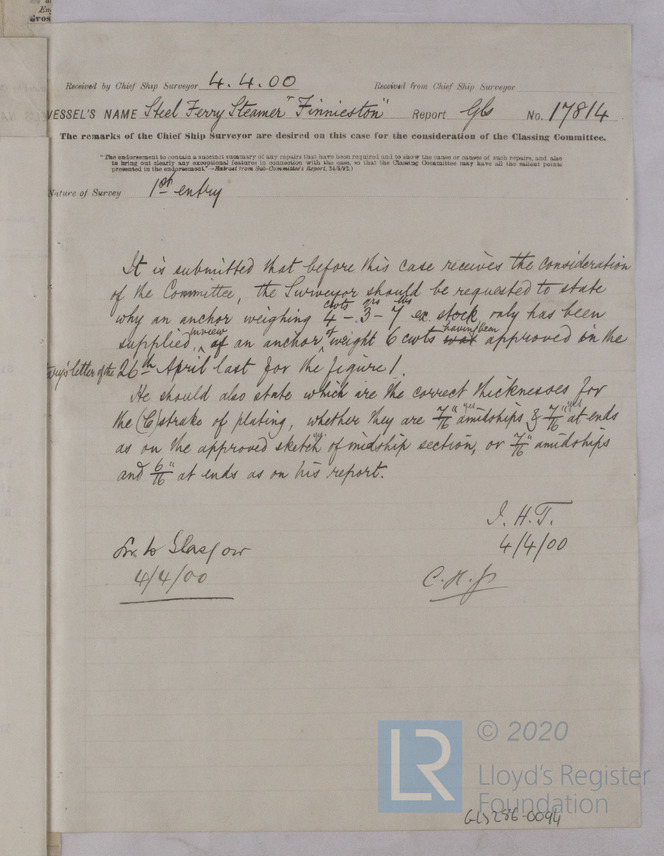 Received by Chief Ship Surveyor 4.4.00 Received from Chief Ship Surveyor
VESSEL'S NAME Steel Ferry Steamer "Finnieston" Report Gls No. 17814
The remarks of the Chief Ship Surveyor are desired on this case for the consideration of the Classing Committee.
"The endorsement to contain a succinct summary of any repairs that have been required and to show the cause or causes of such repairs, and also
to bring out clearly any exceptional features in connection with the case, so that the Classing Committee may have all the salient points
presented in the endorsement."—Extract from Sub-Committee's Report,
Nature of Survey 1st entry
It is submitted that before this case receives the consideration
of the Committee, the Surveyor should be requested to state
why an anchor weighing 4 cwts - 3 qrs - 7 lbs ex stock only has been
supplied, in view of an anchor of weight 6 cwts having been approved in the
letter of the 26th April last for the figure 1.
He should also state which are the correct thicknesses for
the (C) strake of plating, whether they are 7/16" amidships & 7/16" at ends
as on the approved sketch of midship section, or 7/16" amidships
and 6/16" at ends as on his report.
J. H. T.
4/4/00
to Glasgow
4/4/00
LR
© 2020
Lloyd's Register
Foundation
GLS256-0094